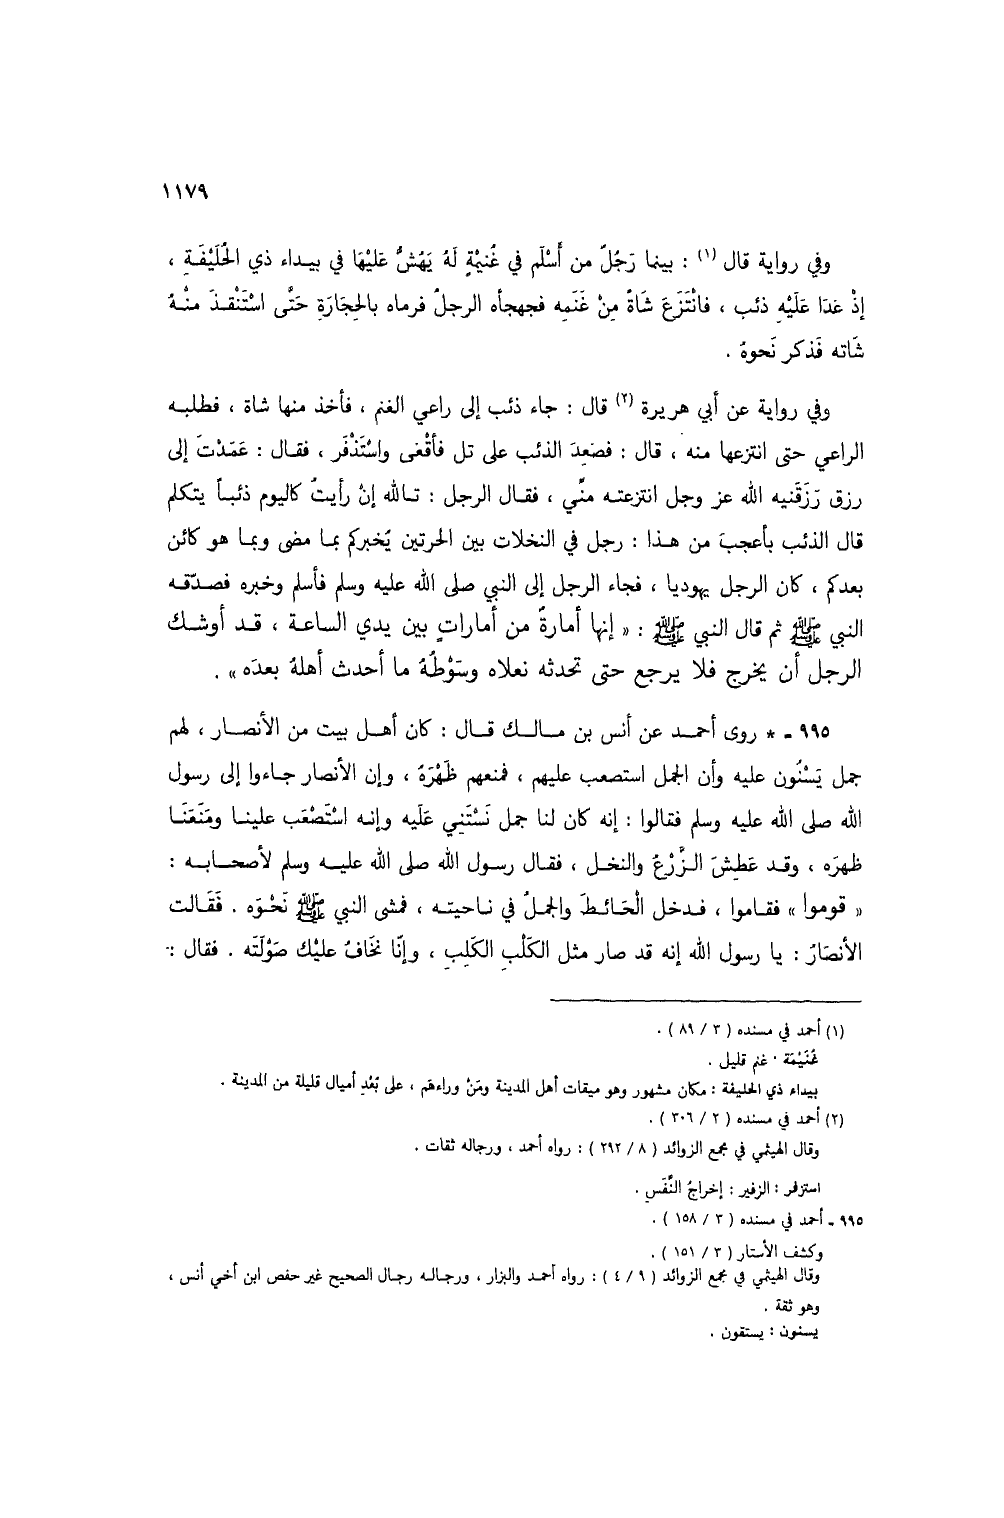 ١١٧٩
وفي رواية قال (١) : بينما رَجُلٌ من أَسْلَم في غُنَيْمَةٍ لَهُ يَهُشُّ عَلَيْهَا في بيداء ذي الحُلَيْفَةِ ،
إذْ عَدَا عَلَيْهِ ذئب ، فانْتَزَعَ شَاةً مِنْ غَنَمِهِ فجهجأه الرجلُ فرماه بالحِجَارَةِ حَتَّى اسْتَنْقذَ مِنْهُ
شَاته فَذكر نَحوهُ .
وفي رواية عن أبي هريرة (٢) قال : جاء ذئب إلى راعي الغنم ، فأخذ منها شاة ، فطلبه
الراعي حتى انتزعها منه ، قال : فصَعِدَ الذئب على تل فأقْعَى واسْتَذْفَر ، فقال : عَمَدْتَ إلى
رزق رَزَقَنيه الله عز وجل انتزعته منِّي ، فقال الرجل : تالله إنْ رأيتُ كاليوم ذئباً يتكلم
قال الذئب بأعجبَ من هذا : رجل في النخلات بين الحرتين يُخبركم بما مضى وبما هو كائن
بعدكم ، كان الرجل يهوديا ، فجاء الرجل إلى النبي صلى الله عليه وسلم فأسلم وخبره فصدّقه
النبي ﷺ ثم قال النبي ﷺ : « إنها أمارةٌ من أماراتٍ بين يدي الساعة ، قد أوشك
الرجل أن يخرج فلا يرجع حتى تحدثه نعلاه وسَوْطُهُ ما أحدث أهلهُ بعدَه » .
٩٩٥ - * روى أحمد عن أنس بن مالك قال : كان أهل بيت من الأنصار ، لهم
جمل يَسْنُون عليه وأن الجمل استصعب عليهم ، فمنعهم ظَهْرَهُ ، وإن الأنصار جاءوا إلى رسول
الله صلى الله عليه وسلم فقالوا : إنه كان لنا جمل نَسْتَني عَلَيه وإنه اسْتَصْعَب علينا ومَنَعَنَا
ظهرَه ، وقد عَطِشَ الزَّرْعُ والنخل ، فقال رسول الله صلى الله عليه وسلم لأصحابه :
« قوموا » فقاموا ، فدخل الْحَائطَ والجملُ في ناحيته ، فمشى النبي ﷺ نَحْوَه . فَقَالت
الأنصَارُ : يا رسول الله إنه قد صار مثل الكَلْبِ الكَلِبِ ، وإنّا نخَافُ عليْك صَوْلَتَه . فقال :
(١) أحمد في مسنده ( ٣ / ٨٩ ) .
غُنَيْمَة · غنم قليل .
بيداء ذي الحليفة : مكان مشهور وهو ميقات أهل المدينة ومَنْ وراءهم ، على بُعْدِ أميال قليلة من المدينة .
(٢) أحمد في مسنده ( ٢ / ٣٠٦ ) .
وقال الهيثمي في مجمع الزوائد ( ٨ / ٢٩٢ ) : رواه أحمد ، ورجاله ثقات .
استزفر : الزفير : إخراجُ النَّفَسِ .
٩٩٥ - أحمد في مسنده ( ٣ / ١٥٨ ) .
وكشف الأستار ( ٣ / ١٥١ ) .
وقال الهيثمي في مجمع الزوائد ( ٩ / ٤ ) : رواه أحمد والبزار ، ورجاله رجال الصحيح غير حفص ابن أخي أنس ،
وهو ثقة .
يسنون : يستقون .